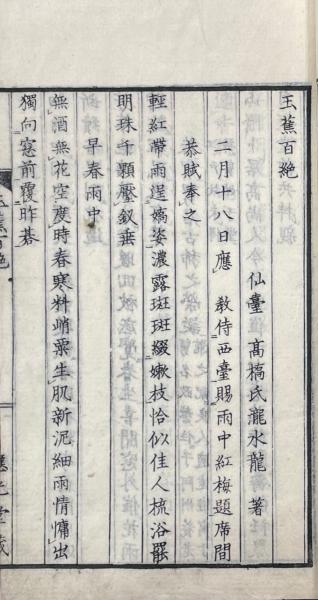 玉蕉百絶
仙臺 高橋氏瀧水龍 著
二月十八日應 教侍西臺賜雨中紅梅題席間
恭賦奉之
輕紅帶雨逞嬌姿濃露斑斑綴嫩枝恰似佳人梳浴罷
明珠千顆壓釵垂
早春雨中
無酒無花空度時春寒料峭粟生肌新泥細雨情慵出
獨向窓前覆昨碁